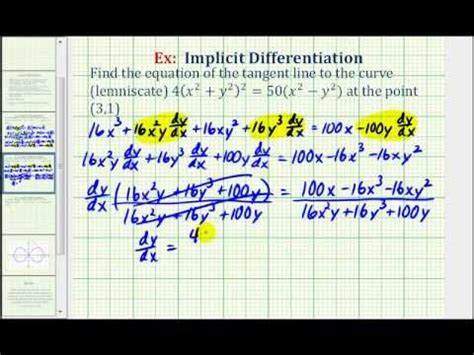 Ex: Implicit Differentiation
Find the equation of the tangent line to the curve
(lemniscate) 4(x² + y²)² = 50(x² − y²) at the point
(3,1)
16x³ + 16x²y dy/dx + 16xy² + 16y³ dy/dx = 100x − 100y dy/dx
16x²y dy/dx + 16y³ dy/dx + 100y dy/dx = 100x − 16x³ − 16xy²
dy/dx (16x²y + 16y³ + 100y) / (16x²y + 16y³ + 100y) = (100x − 16x³ − 16xy²) / (16x²y + 16y³ + 100y)
dy/dx = 4